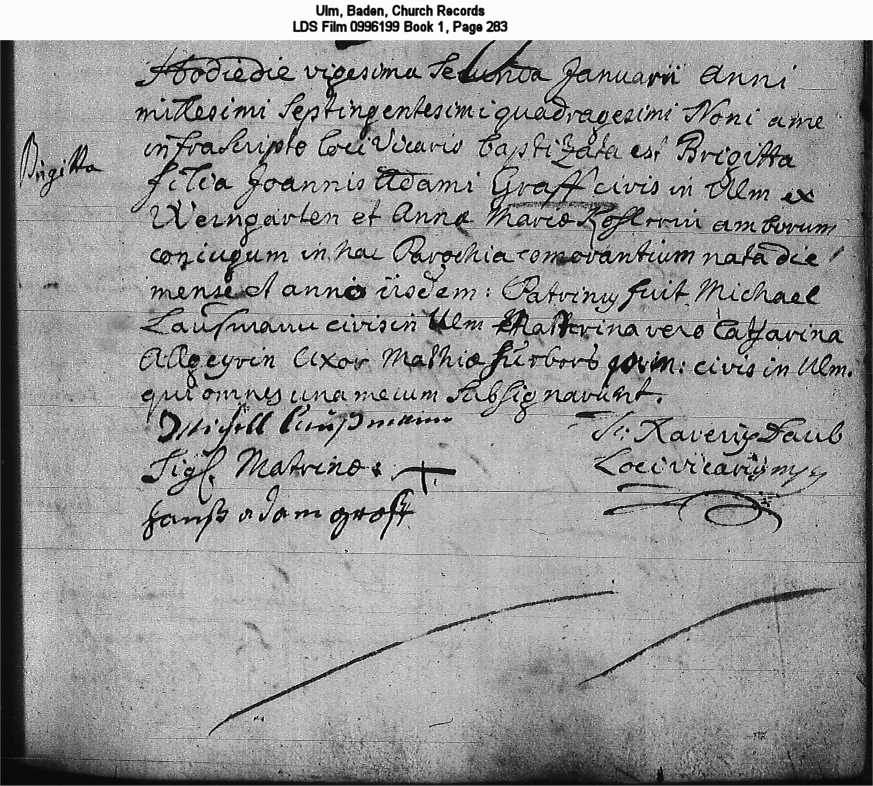 Ulm, Baden, Church Records
LDS Film 0996199 Book 1, Page 283
Hodie die vigesima Secunda Januarii Anni
millesimi Septingentesimi quadragesimi Noni a me
infrascripto loci Vicario baptizata est Brigitta
Brigitta
filia Joannis Adami Graff civis in Ulm ex
Weingarten et Annæ Mariæ amborum
coniugum in hac Parochia comorantium nata die
mense et anno iisdem: Patrinus fuit Michael
Laussmann civis in Ulm Matrina vero Catharina
Allgeyrin Uxor Mathiæ civis in Ulm.
qui omnes una mecum subsignarunt.
Michell
Fr: Xaverius Daub
Sig. Matrinæ +
Loci vicarius mp
hanss adam groff